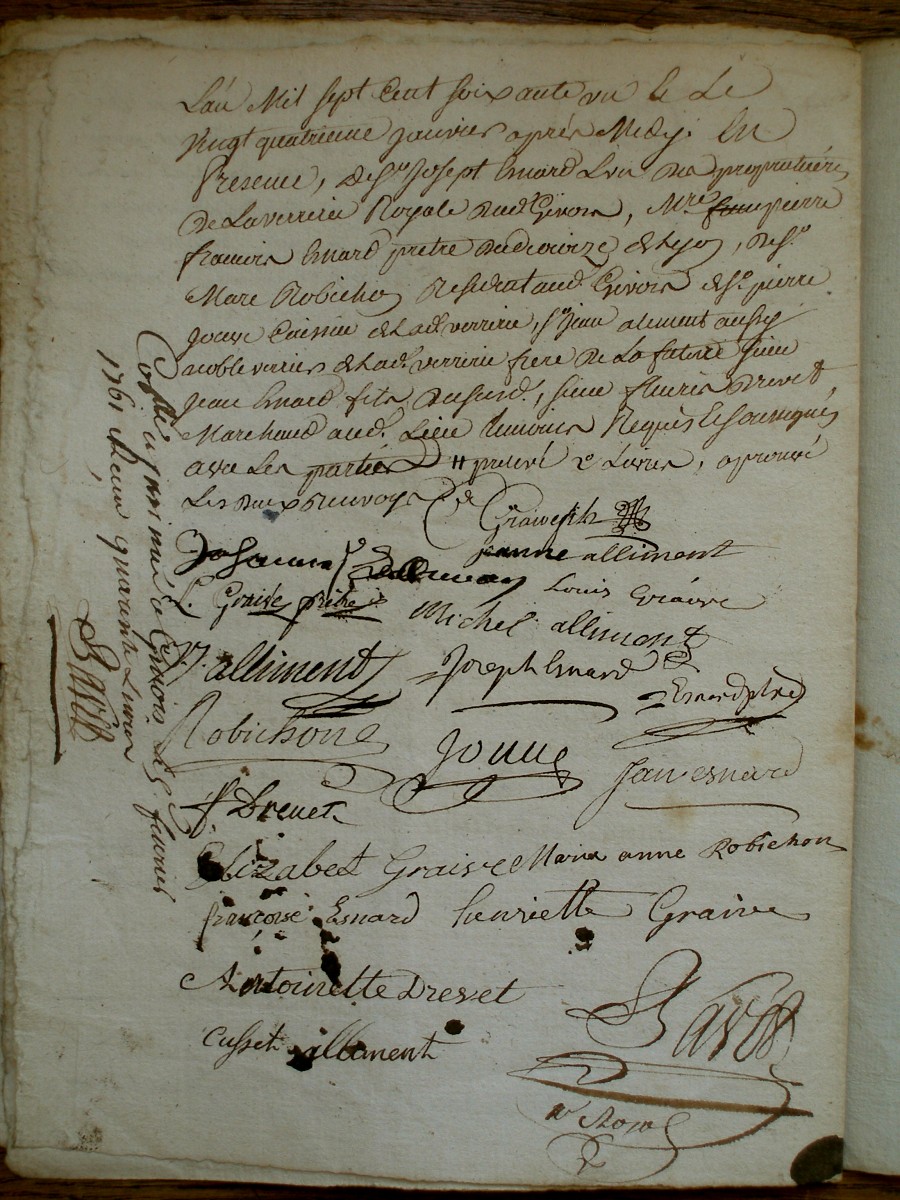 L'an Mil Sept Cent Soixante un & Le
Vingt quatrieme janvier après Midy. En
Presence, de Sr Joseph Esnard L'un des proprietaires
De La verrerie Royale dud. Givors, Mre pierre
francois Esnard prêtre du dioceze de Lyon, de Sr
Marc Robichon Residant aud. Givors de Sr pierre
Jouve Caissier de Lad. verrerie, Sr Jean aliment aussy
noble verrier de Lad. verrerie frere de La future Sieur
Jean Esnard fils dususd., Sieur fleuris Drevet
Marchand aud. Lieu temoins Requis Et soussignés
avec Les parties // , aprouvé
Les deux renvoys
Graiveph
jeanne alliment
Louis Graive
L. Graive prêtre
Michel alliment
alliment
Joseph Esnard
Esnard ptre
Robichone
Jouve
Jan esnard
f Drevet
Elizabet Graive Maria anne Robichon
françoise Esnard henriette Graive
Antoinette Drevet
Cusset alliment
Bavot
Collé a Givors Le 5 fevrier
1761 Reçu quarante Livres
Bavot